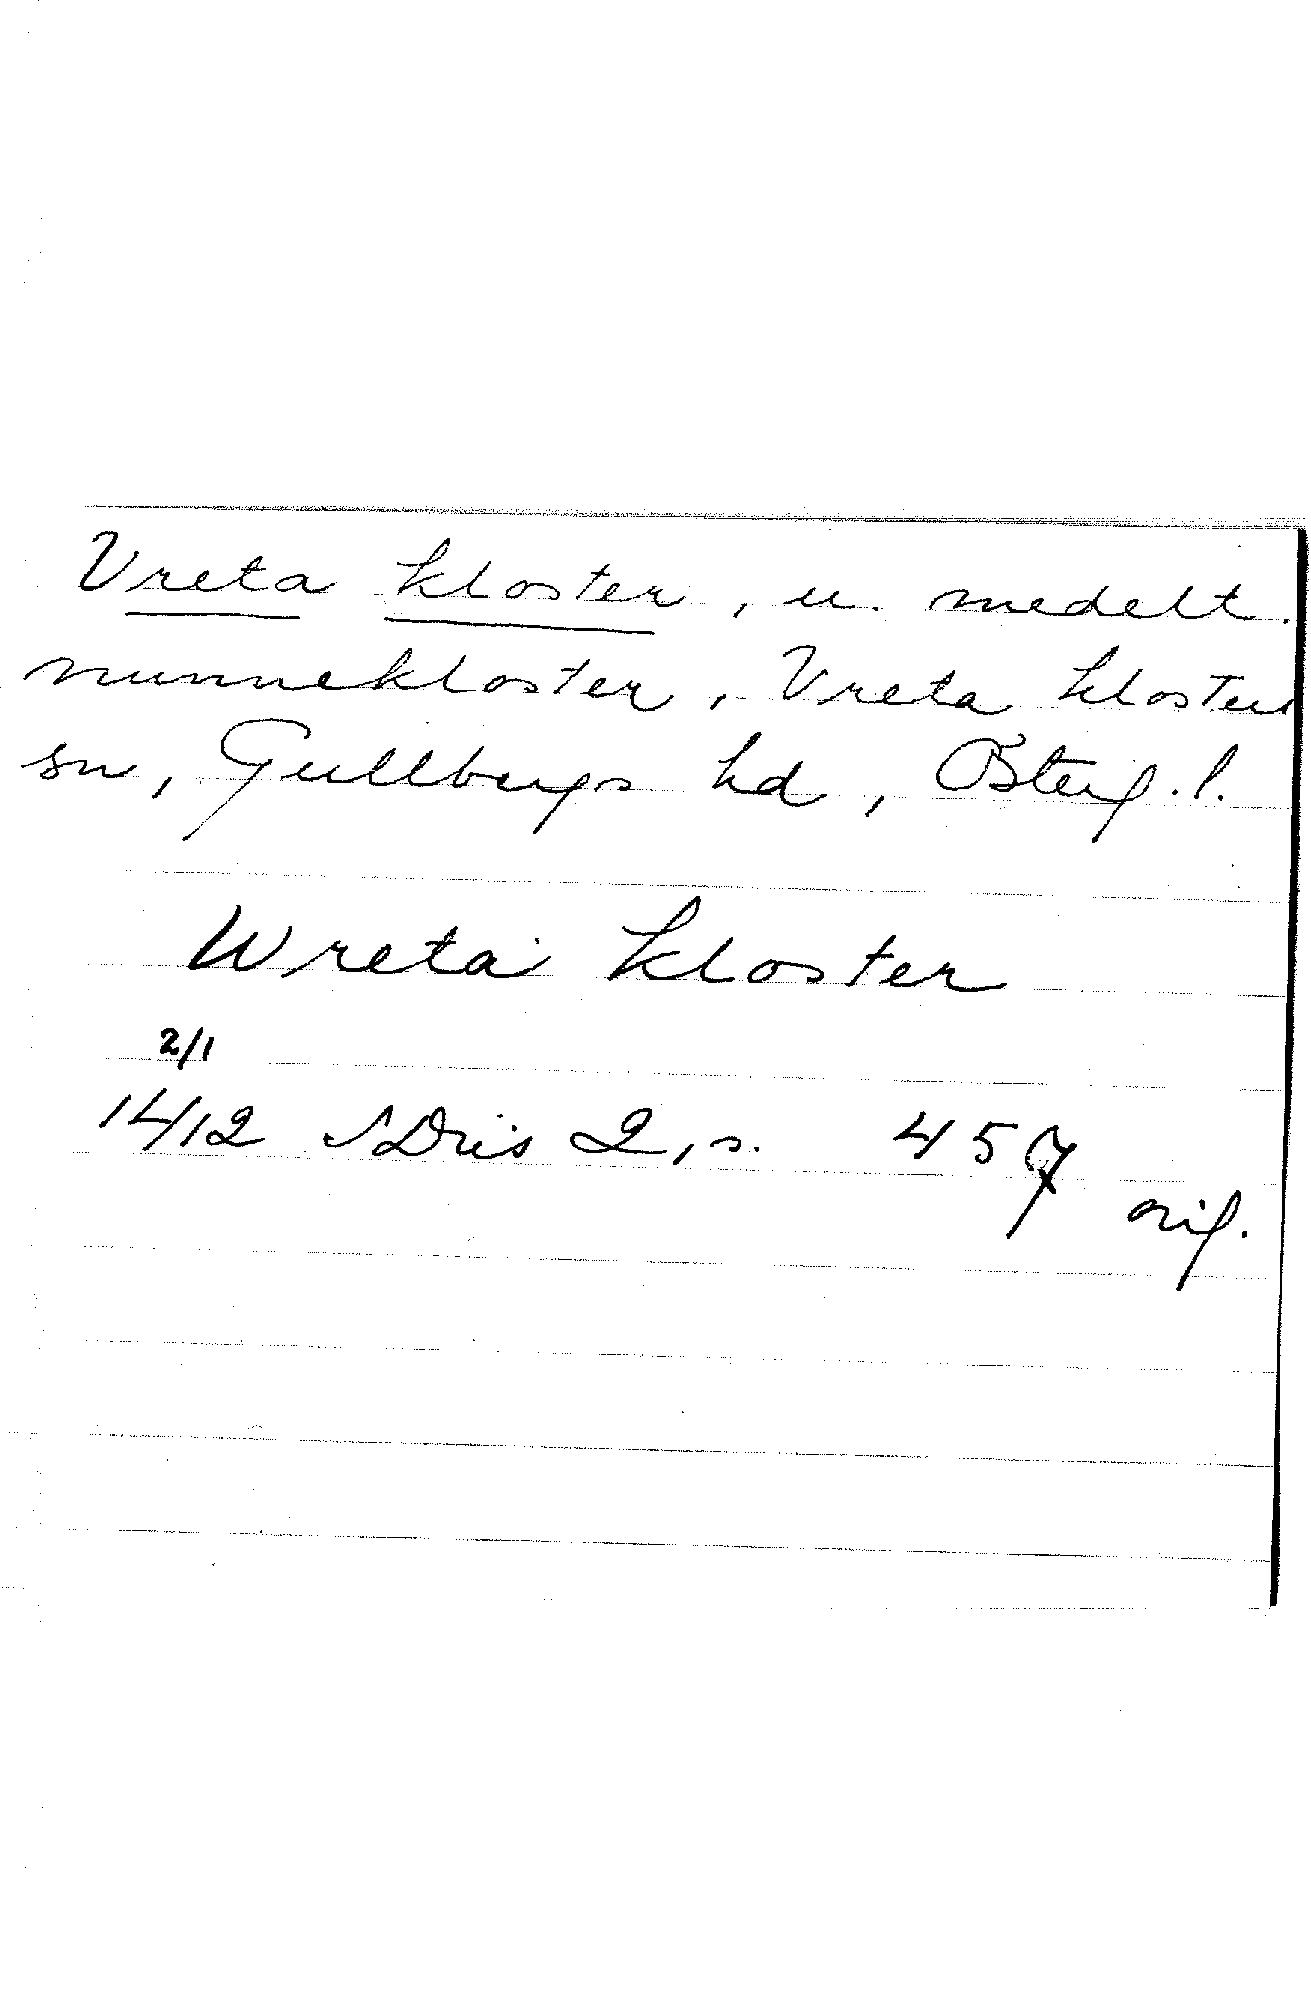 Vreta kloster, u. medelt.
nunnekloster, Vreta kloster
sn, Gullbergs hd, Österg. l.
Wreta kloster
2/1
1412 SDns 2, s. 457
orig.